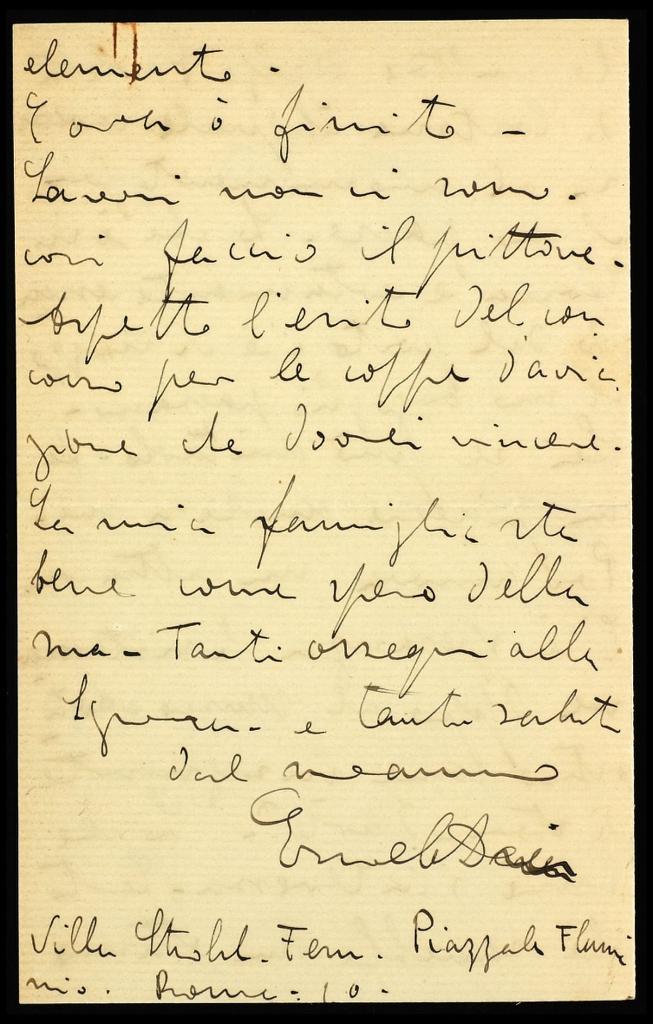 elemento -
è finito -
Lavori non ci sono.
così faccio il pittore.
Aspetto l'esito del con
corso per le coppe d'avia
zione che dovrei vincere.
La mia famiglia sta
bene come spero della
sua - Tanti ossequi alla
Signora - e tanti saluti
dal
Villa Strohl-Fern. Piazzale Flami
nio. Roma - 10 -